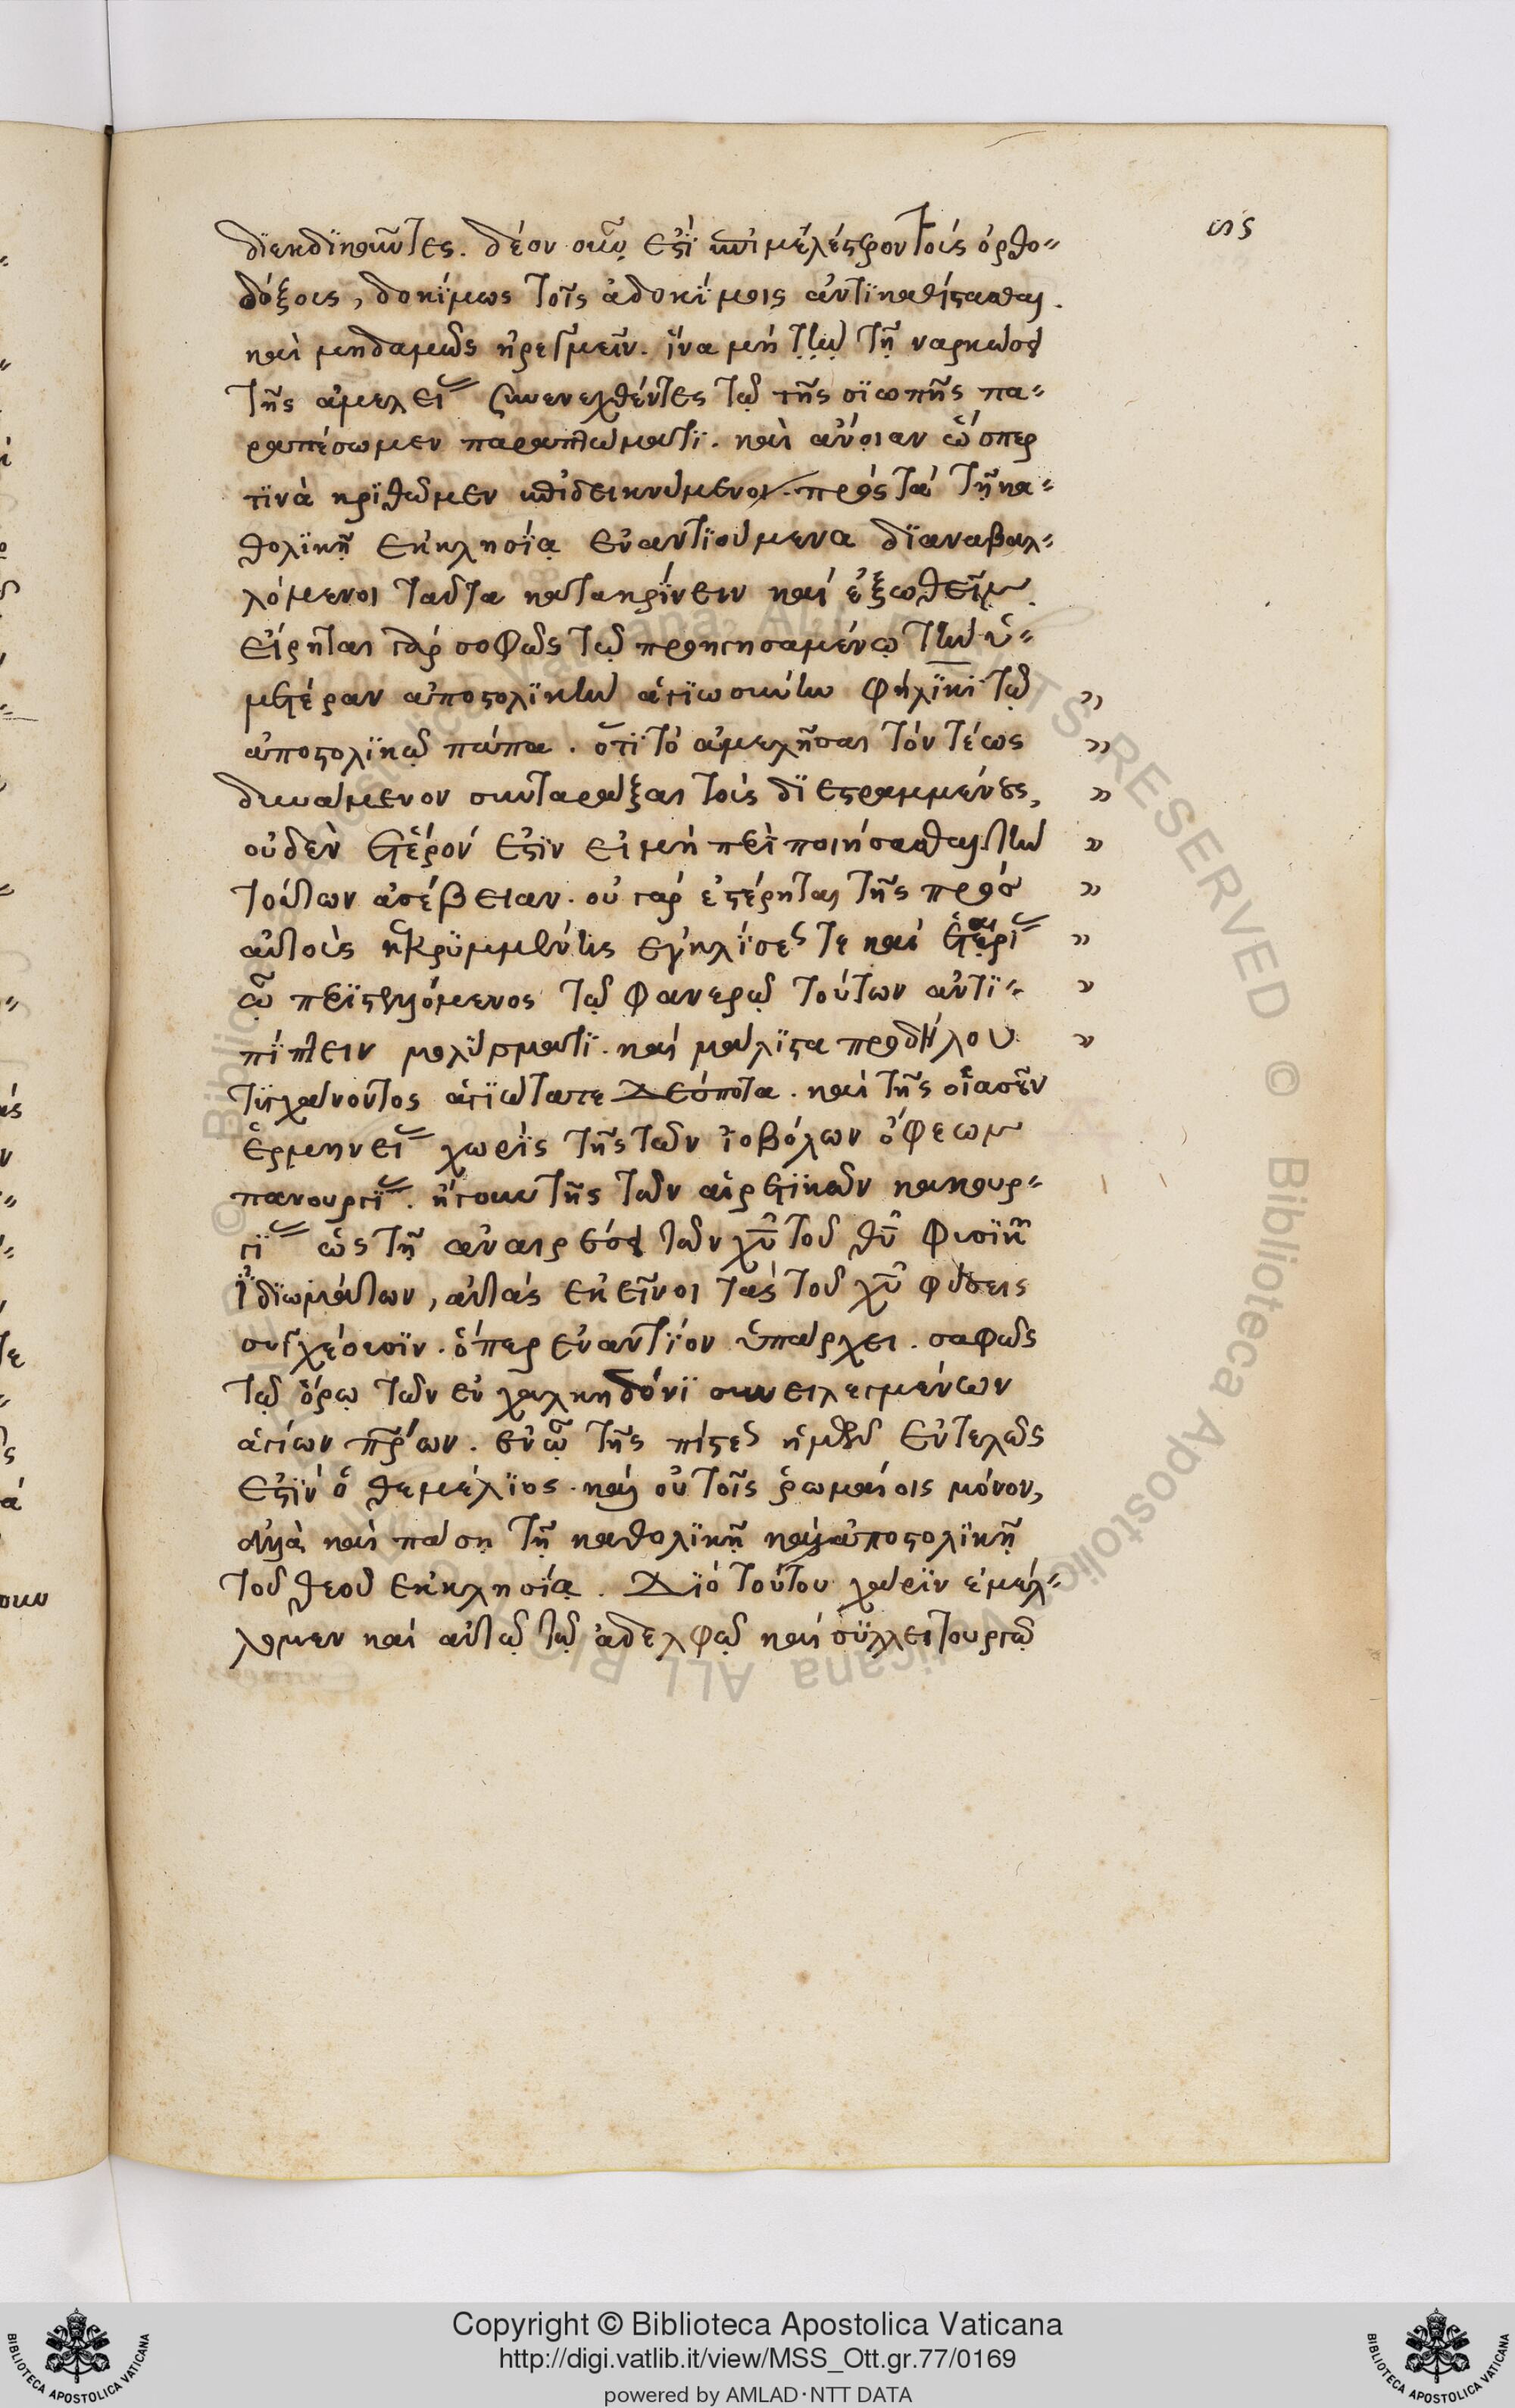 διεκδικοῦντες. δέον οὖν ἐστὶ τοῖς ὀρθο=
δόξοις, δοκίμως τοῖς ἀδοκίμοις ἀντικαθίστασθαι.
καὶ μηδαμῶς ἠρεμεῖν. ἵνα μὴ τῇ ναρκώσει
τῆς ἀμελείας συνενεχθέντες τῷ τῆς σιωπῆς πα=
ραπέσωμεν παραπτώματι. καὶ ἄνοιαν ὥσπερ
τινὰ κριθῶμεν ἐπιδεικνύμενοι. πρὸς τὰ τῇ κα=
θολικῇ ἐκκλησίᾳ ἐναντιούμενα διαναβαλ=
λόμενοι ταῦτα κατακρίνειν καὶ ἐξωθεῖν.
εἴρηται γὰρ σοφῶς τῷ προηγησαμένῳ τὴν ὑ=
μετέραν ἀποστολικὴν ἁγιωσύνην φήλικι τῷ
ἀποστολικῷ πάπα. ὅτι τὸ ἀμελῆσαι τὸν τέως
δυνάμενον συνταράξαι τοὺς διεστραμμένους,
οὐδὲν ἕτερόν ἐστιν εἰ μὴ περιποιήσασθαι τὴν
τούτων ἀσέβειαν. οὐ γὰρ ἐστέρηται τῆς πρὸς
αὐτοὺς κεκρυμμένης ἐγκλίσεως τε καὶ ἑταιρίας
ὁ περιστελλόμενος τῷ φανερῷ τούτων ἀντι=
πίπτειν μολύσματι. καὶ μάλιστα προδήλου
τυγχάνοντος ἁγιώτατε Δέσποτα. καὶ τῆς οἱασοῦν
ἑρμηνείας χωρὶς τῆς τῶν ἰοβόλων ὄφεων
πανουργίας. ἤγουν τῆς τῶν αἱρετικῶν κακουρ=
γίας ὡς τῇ ἀναιρέσει τῶν χ̅υ̅ τοῦ θ̅υ̅ φυσικῶν
ἰδιωμάτων, αὐτὰς ἐκεῖνοι τὰς τοῦ χ̅υ̅ φύσεις
συγχέουσιν. ὅπερ ἐναντίον ὑπάρχει. σαφῶς
τῷ ὅρῳ τῶν ἐν χαλκηδόνι συνειλεγμένων
ἁγίων π̅ρ̅ων. ἐν ᾧ τῆς πίστεως ἡμῶν ἐντελῶς
ἐστὶν ὁ θεμέλιος. καὶ οὐ τοῖς ῥωμαίοις μόνον,
ἀλλὰ καὶ πάσῃ τῇ καθολικῇ καὶ ἀποστολικῇ
τοῦ θεοῦ ἐκκλησίᾳ. Διὸ τούτου χάριν ἐμέλ=
λομεν καὶ αὐτῷ τῷ ἀδελφῷ καὶ συλλειτουργῷ
Copyright © Biblioteca Apostolica Vaticana
http://digi.vatlib.it/view/MSS_Ott.gr.77/0169
powered by AMLAD·NTT DATA